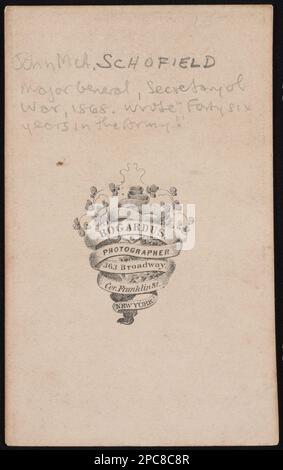 John McA. SCHOFIELD
Major General, Secretary of
War, 1868. Wrote "Forty six
years in the Army."
BOGARDUS,
PHOTOGRAPHER
363 Broadway,
Cor. Franklin St.
NEW YORK
alamy
Image ID: 2PC8C8R
www.alamy.com